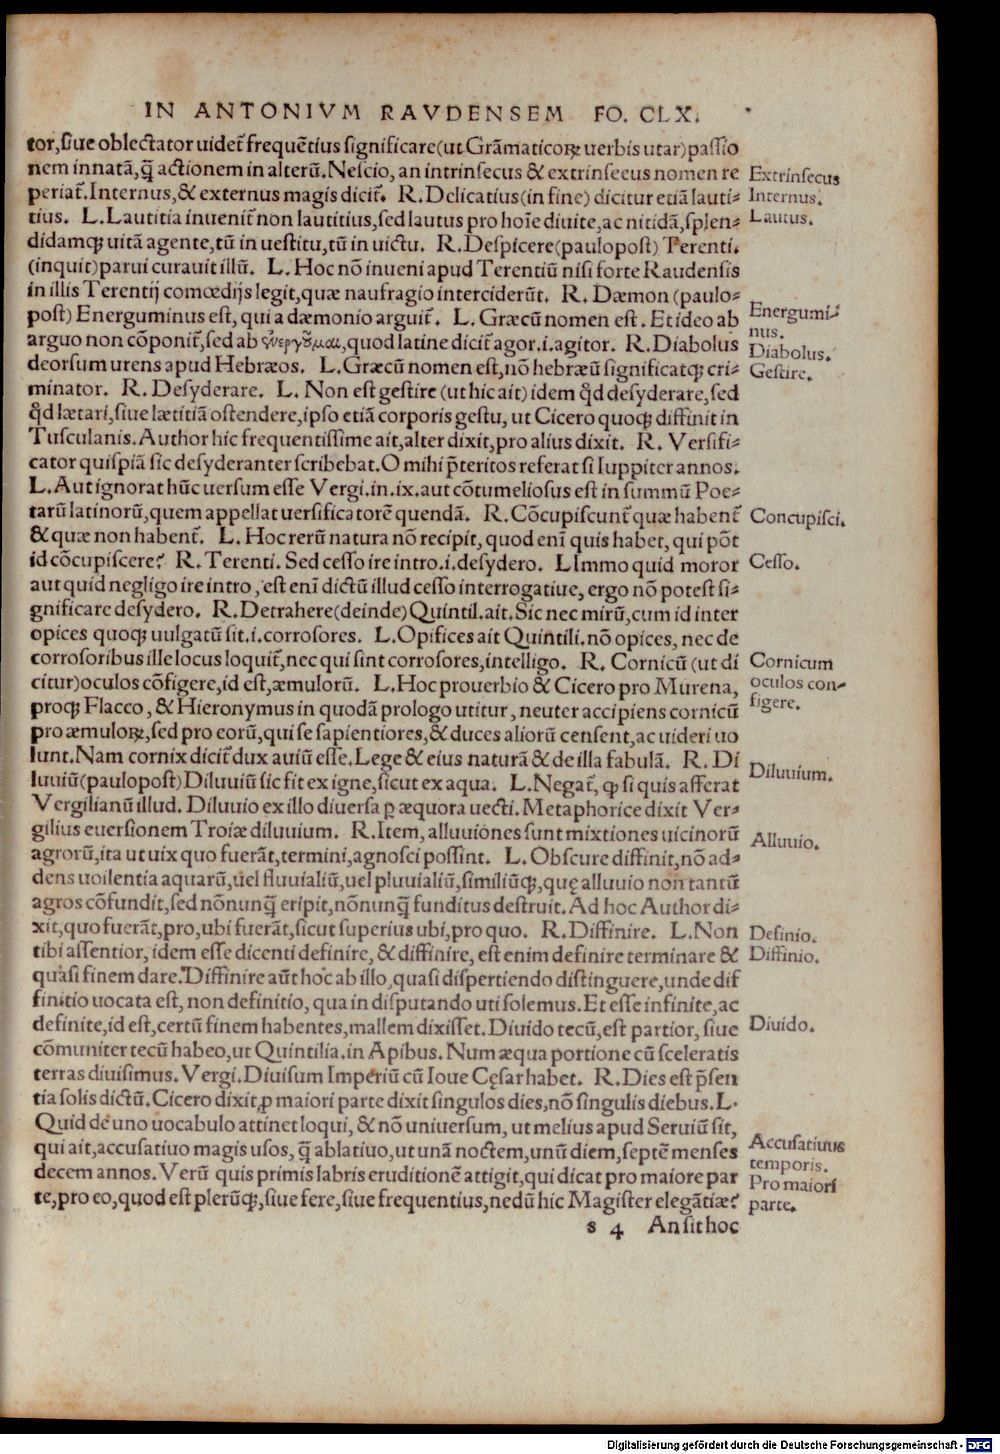 IN ANTONIVM RAVDENSEM FO. CLX.
tor, siue oblectator uidet᷑ frequētius significare (ut Grāmaticoꝝ uerbis utar) passio
nem innatā, q̄ actionem in alterū. Nescio, an intrinsecus & extrinsecus nomen re
periat᷑. Internus, & externus magis dicit᷑. R. Delicatius (in fine) dicitur etiā lauti-
tius. L. Lautitia inuenit᷑ non lautitius, sed lautus pro hoīe diuite, ac nitidā, splen-
didamqꝫ uitā agente, tū in uestitu, tū in uictu. R. Despicere (paulopost) Terenti.
(inquit) parui curauit illū. L. Hoc nō inueni apud Terentiū nisi forte Raudensis
in illis Terentij comœdijs legit, quæ naufragio interciderūt. R. Dæmon (paulo-
post) Energuminus est, qui a dæmonio arguit᷑. L. Græcū nomen est. Et ideo ab
arguo non cōponit᷑, sed ab ἐνεργοῦμαι, quod latine dicit᷑ agor .i. agitor. R. Diabolus
deorsum urens apud Hebræos. L. Græcū nomen est, nō hebræū significatqꝫ cri-
minator. R. Desyderare. L. Non est gestire (ut hic ait) idem qd̄ desyderare, sed
qd̄ lætari, siue lætitiā ostendere, ipso etiā corporis gestu, ut Cicero quoqꝫ diffinit in
Tusculanis. Author hic frequentissime ait, alter dixit, pro alius dixit. R. Versifi-
cator quispiā sic desyderanter scribebat. O mihi p̄teritos referat si Iuppiter annos.
L. Aut ignorat hūc uersum esse Vergi. in .ix. aut cōtumeliosus est in summū Poe-
tarū latinorū, quem appellat uersificatorē quendā. R. Cōcupiscunt᷑ quæ habent᷑
& quæ non habent᷑. L. Hoc rerū natura nō recipit, quod enī quis habet, qui pōt
id cōcupiscere? R. Terenti. Sed cesso ire intro .i. desydero. L Immo quid moror
aut quid negligo ire intro, est enī dictū illud cesso interrogatiue, ergo nō potest si-
gnificare desydero. R. Detrahere (deinde) Quintil. ait. Sic nec mirū, cum id inter
opices quoqꝫ uulgatū sit .i. corrosores. L. Opifices ait Quintili. nō opices, nec de
corrosoribus ille locus loquit᷑, nec qui sint corrosores, intelligo. R. Cornicū (ut di
citur) oculos cōfigere, id est, æmulorū. L. Hoc prouerbio & Cicero pro Murena,
proqꝫ Flacco, & Hieronymus in quodā prologo utitur, neuter accipiens cornicū
pro æmuloꝝ, sed pro eorū, qui se sapientiores, & duces aliorū censent, ac uideri uo
lunt. Nam cornix dicit᷑ dux auiū esse. Lege & eius naturā & de illa fabulā. R. Di
luuiū (paulopost) Diluuiū sic fit ex igne, sicut ex aqua. L. Negat᷑, ꝙ si quis afferat
Vergilianū illud. Diluuio ex illo diuersa ꝑ æquora uecti. Metaphorice dixit Ver-
gilius euersionem Troiæ diluuium. R. Item, alluuiones sunt mixtiones uicinorū
agrorū, ita ut uix quo fuerāt, termini, agnosci possint. L. Obscure diffinit, nō ad-
dens uoilentia aquarū, uel fluuialiū, uel pluuialiū, similiūqꝫ, quę alluuio non tantū
agros cōfundit, sed nōnunq̄ eripit, nōnunq̄ funditus destruit. Ad hoc Author di-
xit, quo fuerāt, pro, ubi fuerāt, sicut superius ubi, pro quo. R. Diffinire. L. Non
tibi assentior, idem esse dicenti definire, & diffinire, est enim definire terminare &
quasi finem dare. Diffinire aūt hoc ab illo, quasi dispertiendo distinguere, unde dif
finitio uocata est, non definitio, qua in disputando uti solemus. Et esse infinite, ac
definite, id est, certū finem habentes, mallem dixisset. Diuido tecū, est partior, siue
cōmuniter tecū habeo, ut Quintilia. in Apibus. Num æqua portione cū sceleratis
terras diuisimus. Vergi. Diuisum Imperiū cū Ioue Cęsar habet. R. Dies est p̄sen
tia solis dictū. Cicero dixit, ꝓ maiori parte dixit singulos dies, nō singulis diebus. L.
Quid de uno uocabulo attinet loqui, & nō uniuersum, ut melius apud Seruiū sit,
qui ait, accusatiuo magis usos, q̄ ablatiuo, ut unā noctem, unū diem, septē menses
decem annos. Verū quis primis labris eruditionē attigit, qui dicat pro maiore par
te, pro eo, quod est plerūqꝫ, siue fere, siue frequentius, nedū hic Magister elegātiæ?
s 4 An sit hoc
Extrinsecus
Internus.
Lautus.
Energumi-
nus.
Diabolus.
Gestire.
Concupisci.
Cesso.
Cornicum
oculos con-
figere.
Diluuium.
Alluuio.
Definio.
Diffinio.
Diuido.
Accusatiuus
temporis.
Pro maiori
parte.
Digitalisierung gefördert durch die Deutsche Forschungsgemeinschaft - DFG